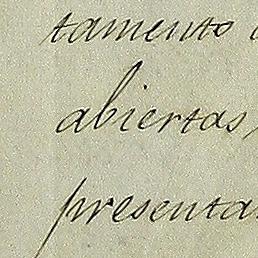 tamento
abiertas,
presenta